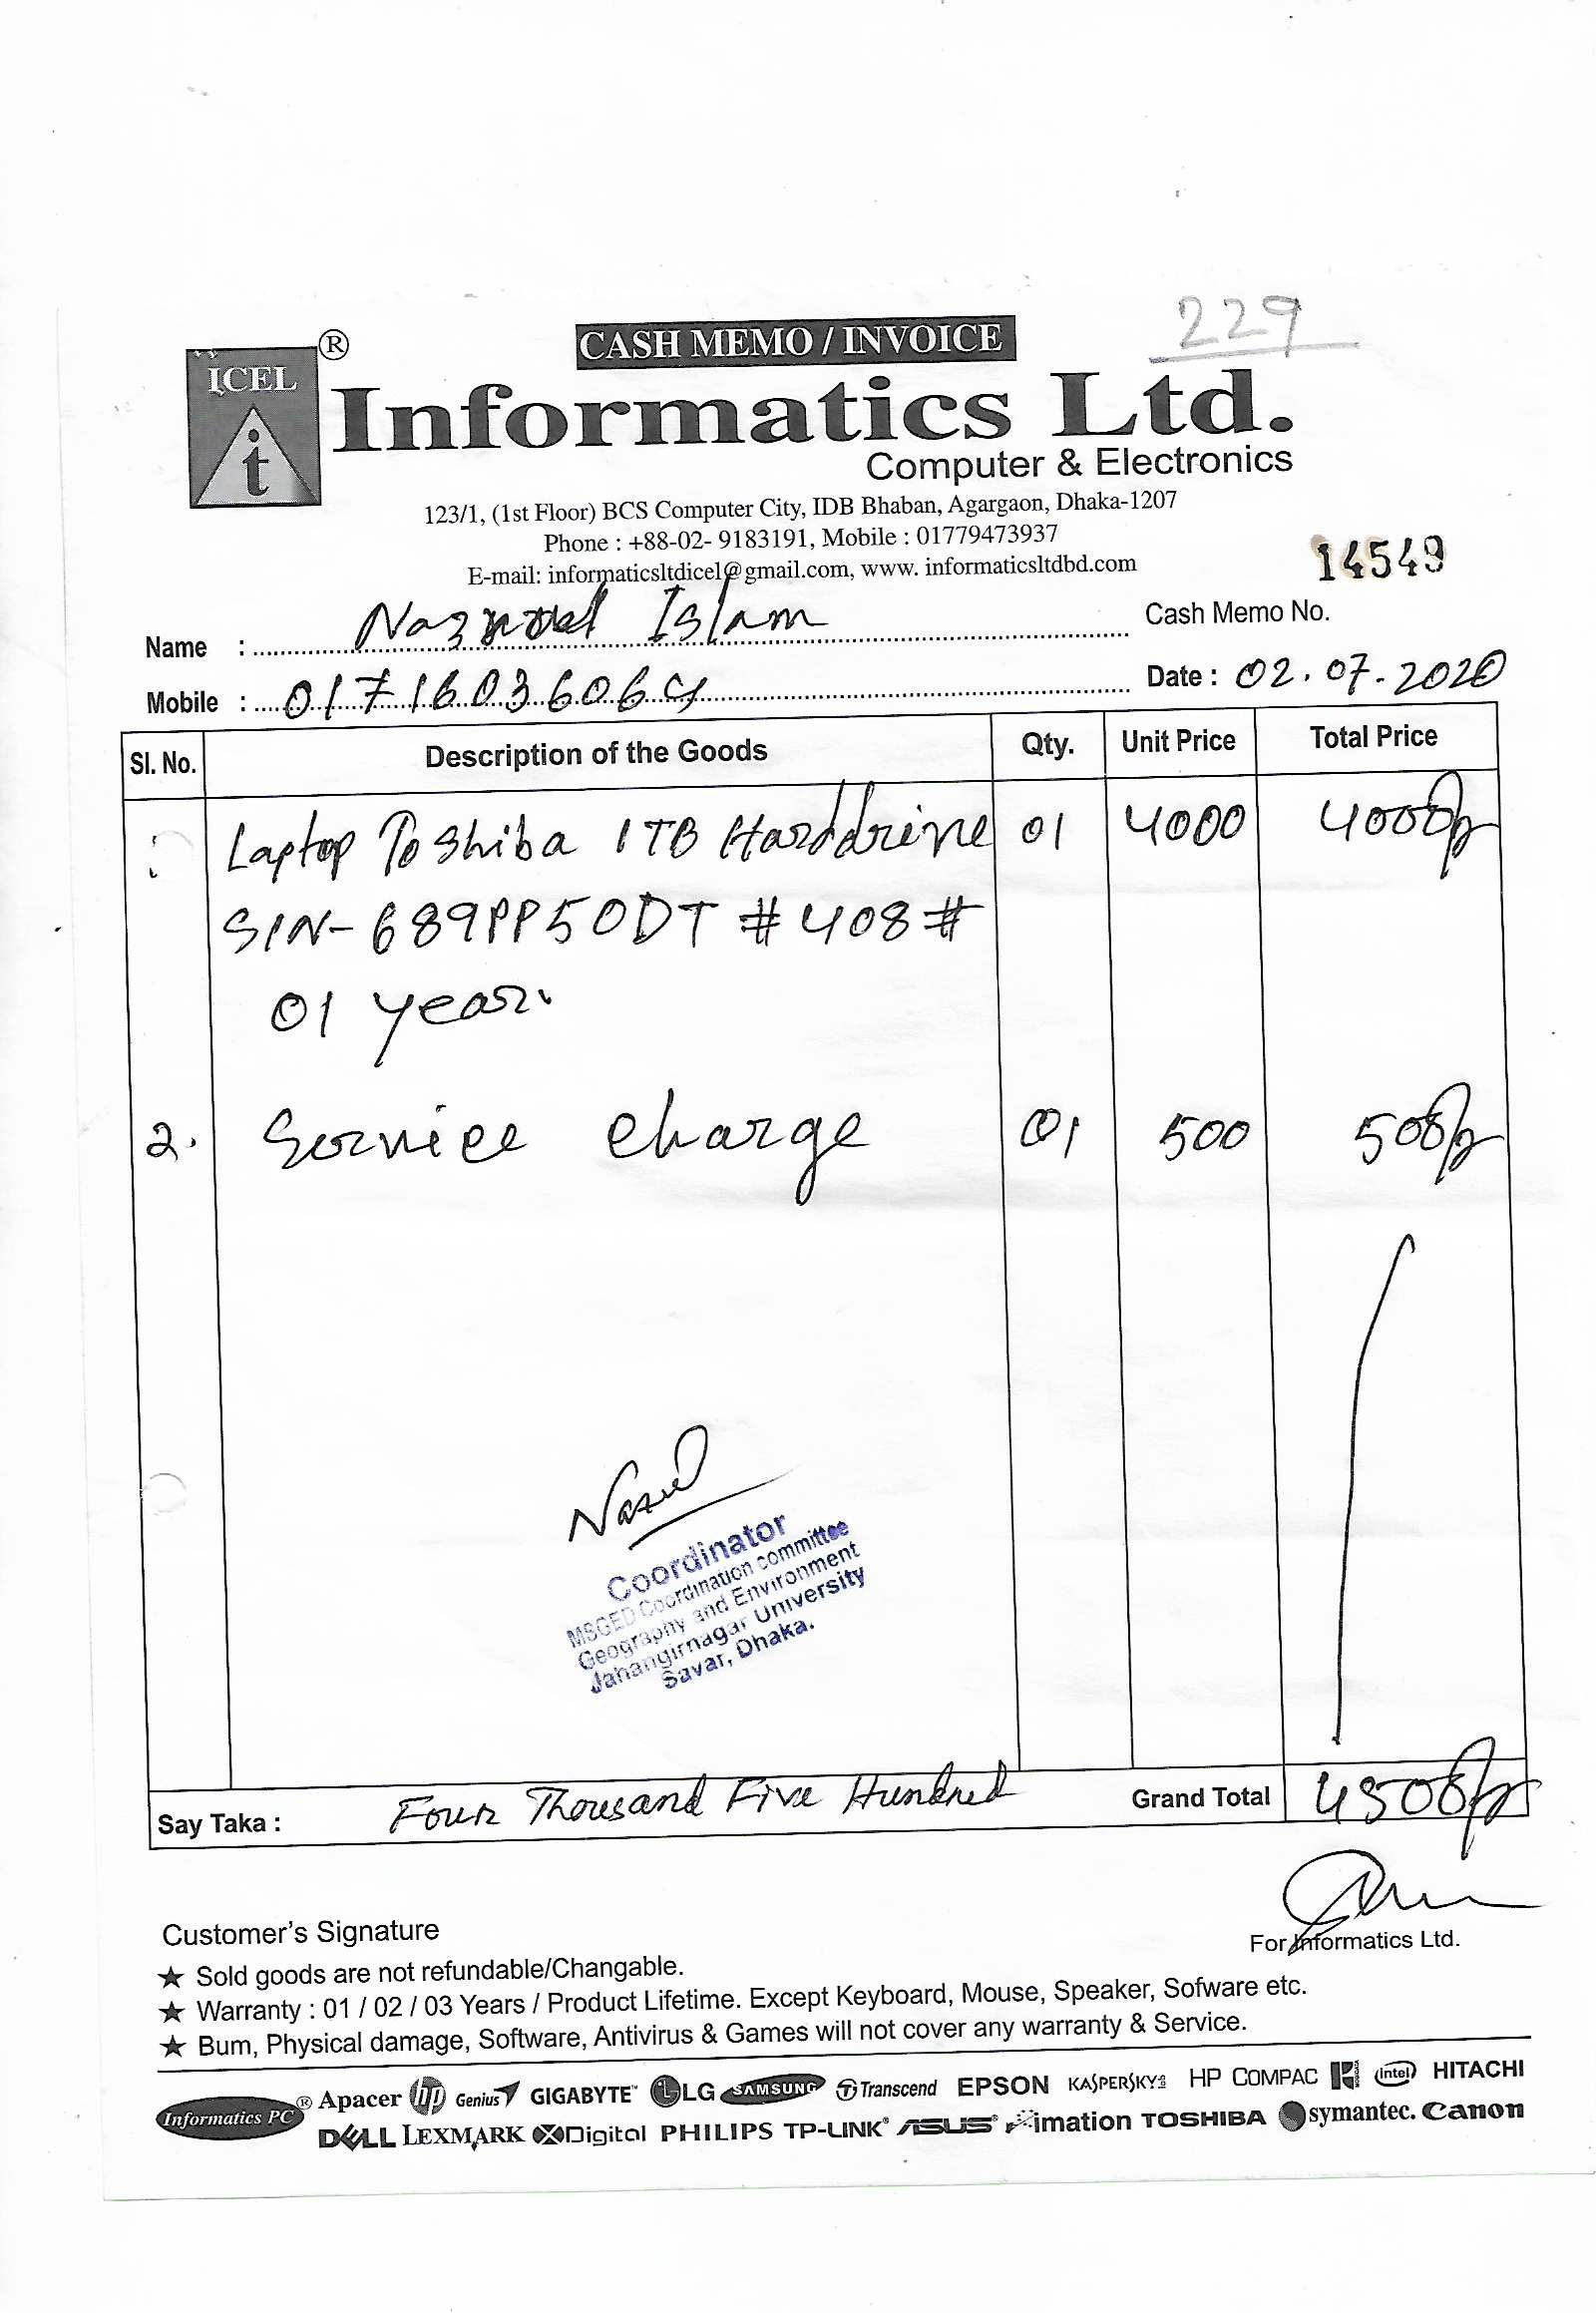 229
CASH MEMO / INVOICE
ICEL ®
i
Informatics Ltd.
Computer & Electronics
123/1, (1st Floor) BCS Computer City, IDB Bhaban, Agargaon, Dhaka-1207
Phone : +88-02- 9183191, Mobile : 01779473937
E-mail: informaticsltdicel@gmail.com, www. informaticsltdbd.com
14549
Cash Memo No.
Name : Islam
Mobile : 01716036064
Date : 02.07-2020
Sl. No. Description of the Goods Qty. Unit Price Total Price
Laptop Toshiba 1TB Harddrive 01 4000 4000/=
S/N- 689PP50DT #408#
01 year.
2. Service charge 01 500 500/=
Coordinator
MSGED Coordination committee
Geography and Environment
Jahangirnagar University
Savar, Dhaka.
Say Taka : Four Thousand Five Hundred Grand Total 4500/=
Customer's Signature
For Informatics Ltd.
★ Sold goods are not refundable/Changable.
★ Warranty : 01 / 02 / 03 Years / Product Lifetime. Except Keyboard, Mouse, Speaker, Sofware etc.
★ Bum, Physical damage, Software, Antivirus & Games will not cover any warranty & Service.
Informatics PC ® Apacer hp Genius GIGABYTE LG SAMSUNG Transcend EPSON KASPERSKY HP COMPAQ intel HITACHI
DELL LEXMARK Digital PHILIPS TP-LINK ASUS imation TOSHIBA symantec. Canon